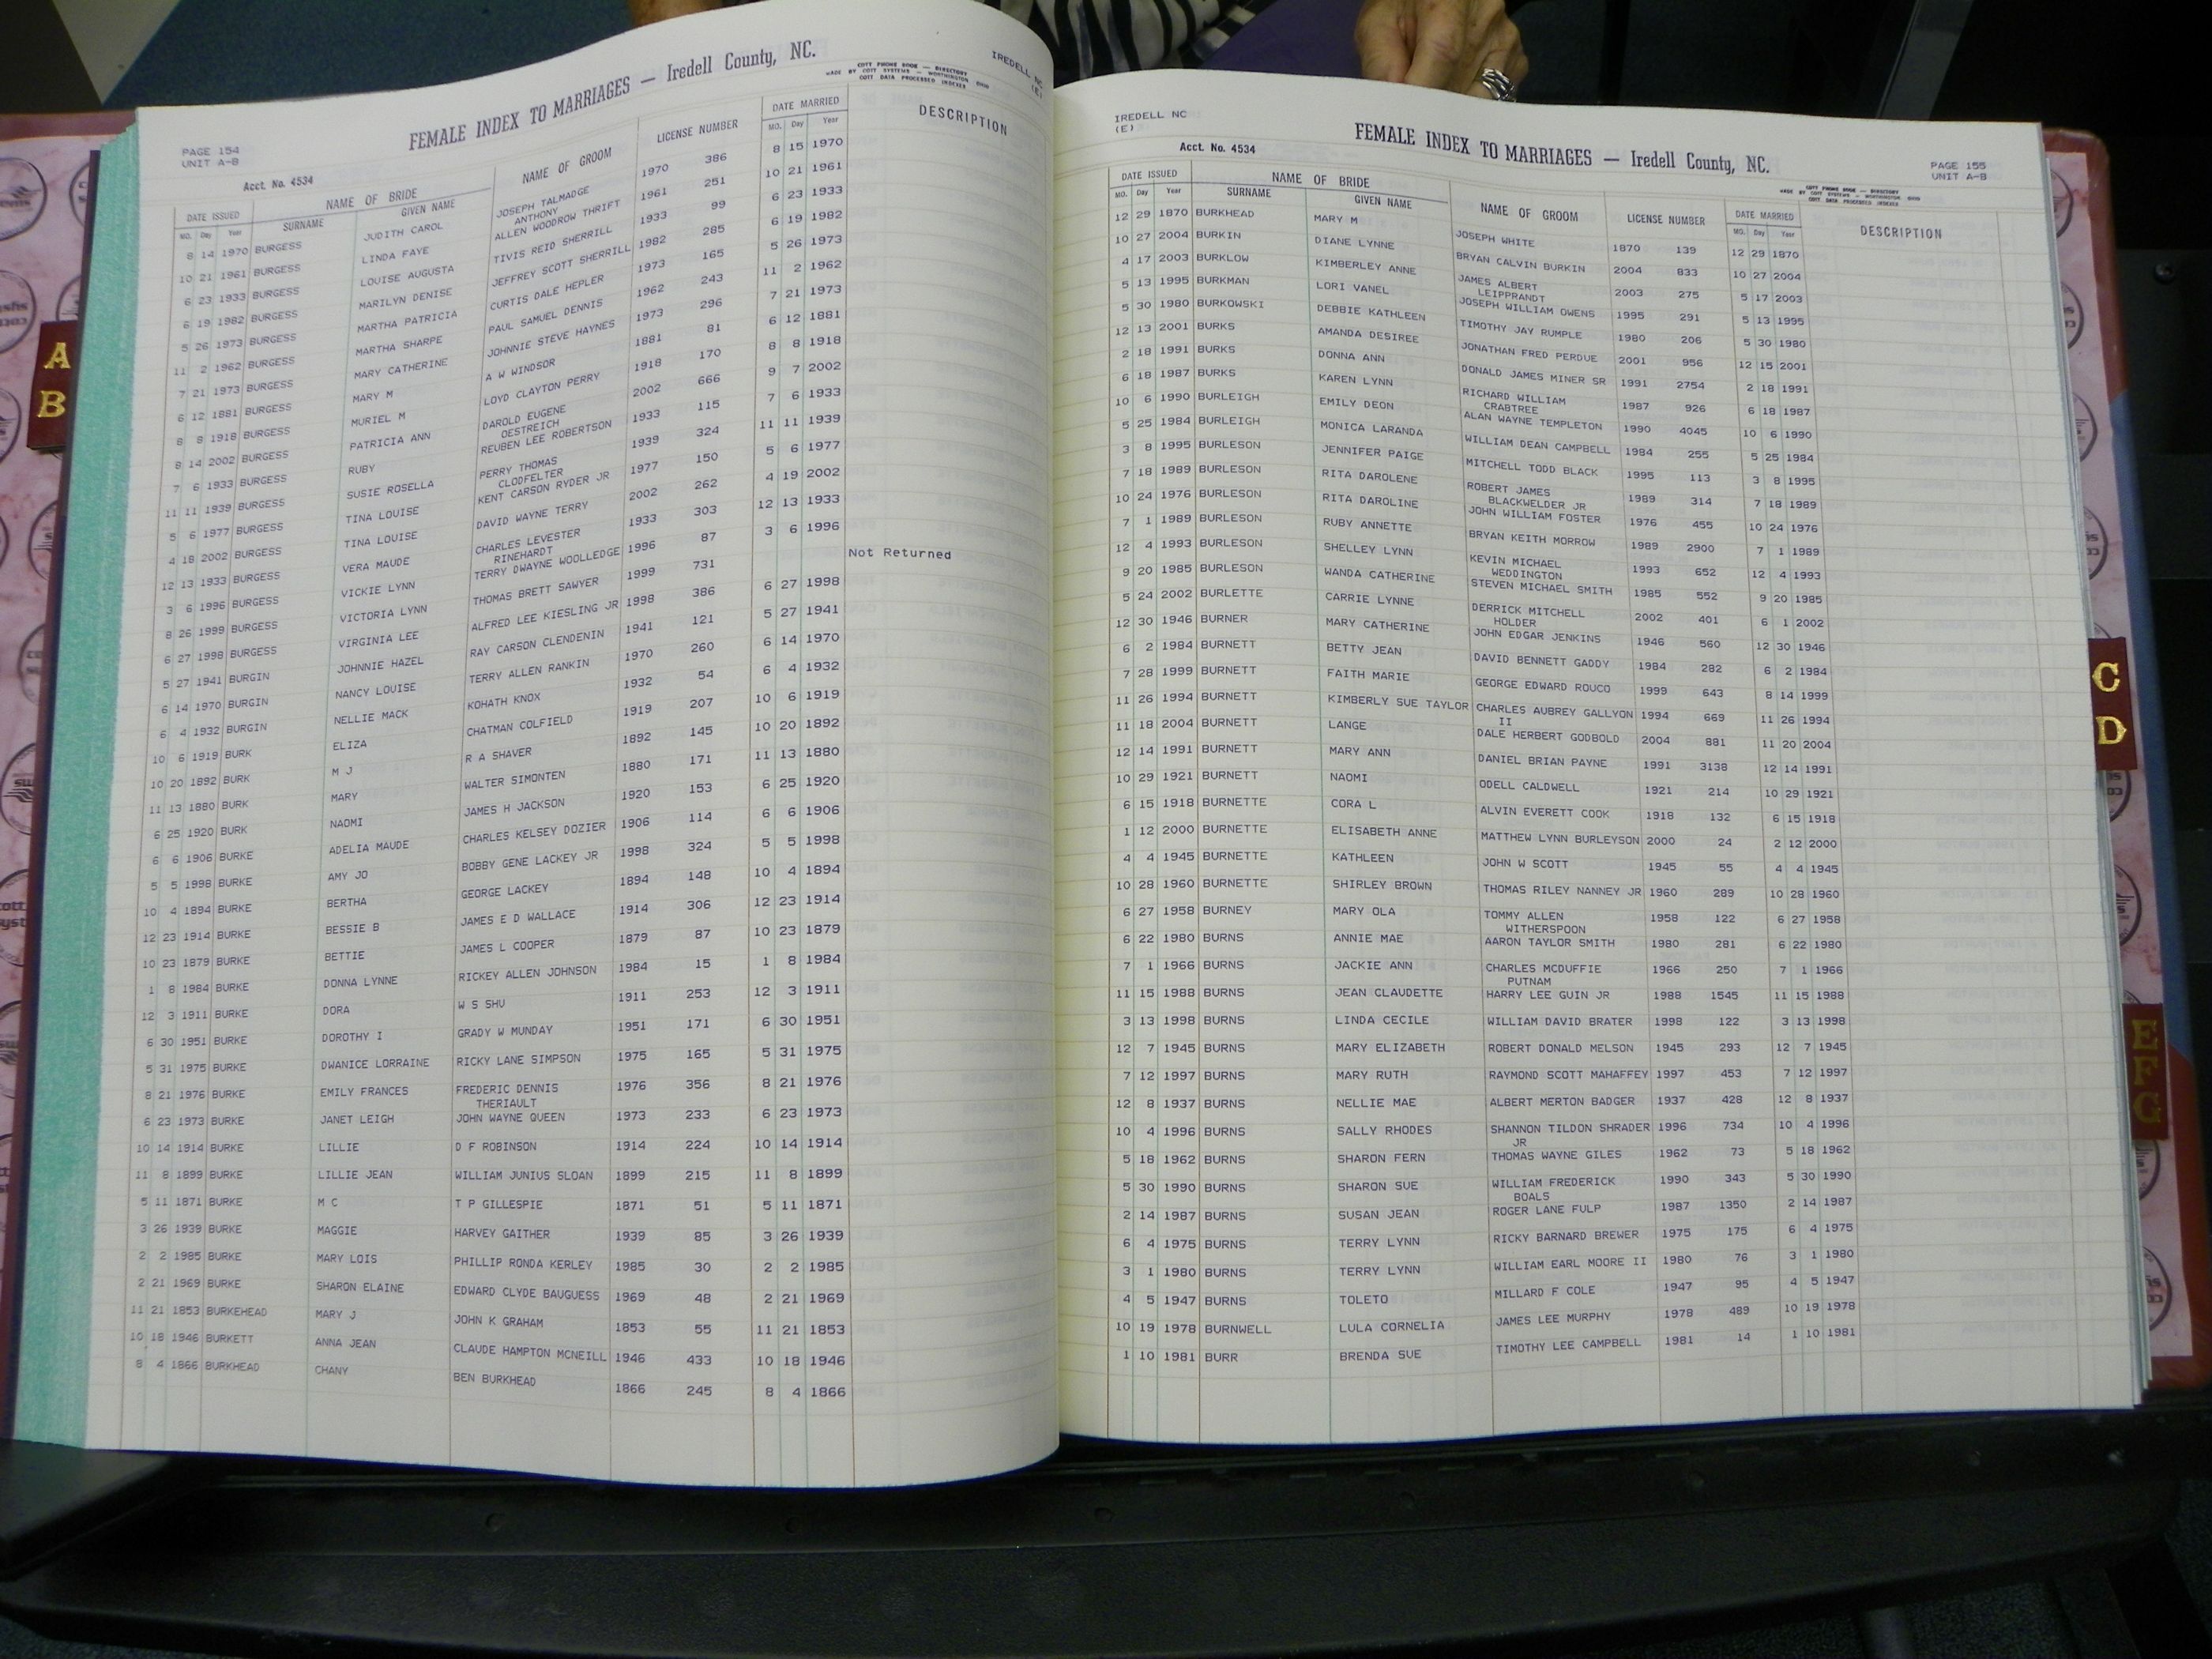 PAGE 154
UNIT A-B
FEMALE INDEX TO MARRIAGES — Iredell County, NC.
COTT PHONE BOOK — DIRECTORY
MADE BY COTT SYSTEMS — WORTHINGTON OHIO
COTT DATA PROCESSED INDEXER
IREDELL NC
(E)
Acct. No. 4534
DATE ISSUED NAME OF BRIDE NAME OF GROOM LICENSE NUMBER DATE MARRIED DESCRIPTION
MO. Day Year SURNAME GIVEN NAME MO. Day Year
8 14 1970 BURGESS JUDITH CAROL JOSEPH TALMADGE 1970 386 8 15 1970
ANTHONY
10 21 1961 BURGESS LINDA FAYE ALLEN WOODROW THRIFT 1961 251 10 21 1961
6 23 1933 BURGESS LOUISE AUGUSTA TIVIS REID SHERRILL 1933 99 6 23 1933
6 19 1982 BURGESS MARILYN DENISE JEFFREY SCOTT SHERRILL 1982 285 6 19 1982
5 26 1973 BURGESS MARTHA PATRICIA CURTIS DALE HEPLER 1973 165 5 26 1973
11 2 1962 BURGESS MARTHA SHARPE PAUL SAMUEL DENNIS 1962 243 11 2 1962
7 21 1973 BURGESS MARY CATHERINE JOHNNIE STEVE HAYNES 1973 296 7 21 1973
6 12 1881 BURGESS MARY M A W WINDSOR 1881 81 6 12 1881
8 8 1918 BURGESS MURIEL M LOYD CLAYTON PERRY 1918 170 8 8 1918
8 14 2002 BURGESS PATRICIA ANN DAROLD EUGENE 2002 666 9 7 2002
OESTREICH
7 6 1933 BURGESS RUBY REUBEN LEE ROBERTSON 1933 115 7 6 1933
11 11 1939 BURGESS SUSIE ROSELLA PERRY THOMAS 1939 324 11 11 1939
CLODFELTER
5 6 1977 BURGESS TINA LOUISE KENT CARSON RYDER JR 1977 150 5 6 1977
4 18 2002 BURGESS TINA LOUISE DAVID WAYNE TERRY 2002 262 4 19 2002
12 13 1933 BURGESS VERA MAUDE CHARLES LEVESTER 1933 303 12 13 1933
RINEHARDT
3 6 1996 BURGESS VICKIE LYNN TERRY DWAYNE WOOLLEDGE 1996 87 3 6 1996
8 26 1999 BURGESS VICTORIA LYNN THOMAS BRETT SAWYER 1999 731 Not Returned
6 27 1998 BURGESS VIRGINIA LEE ALFRED LEE KIESLING JR 1998 386 6 27 1998
5 27 1941 BURGIN JOHNNIE HAZEL RAY CARSON CLENDENIN 1941 121 5 27 1941
6 14 1970 BURGIN NANCY LOUISE TERRY ALLEN RANKIN 1970 260 6 14 1970
6 4 1932 BURGIN NELLIE MACK KOHATH KNOX 1932 54 6 4 1932
10 6 1919 BURK ELIZA CHATMAN COLFIELD 1919 207 10 6 1919
10 20 1892 BURK M J R A SHAVER 1892 145 10 20 1892
11 13 1880 BURK MARY WALTER SIMONTEN 1880 171 11 13 1880
6 25 1920 BURK NAOMI JAMES H JACKSON 1920 153 6 25 1920
6 6 1906 BURKE ADELIA MAUDE CHARLES KELSEY DOZIER 1906 114 6 6 1906
5 5 1998 BURKE AMY JO BOBBY GENE LACKEY JR 1998 324 5 5 1998
10 4 1894 BURKE BERTHA GEORGE LACKEY 1894 148 10 4 1894
12 23 1914 BURKE BESSIE B JAMES E D WALLACE 1914 306 12 23 1914
10 23 1879 BURKE BETTIE JAMES L COOPER 1879 87 10 23 1879
1 8 1984 BURKE DONNA LYNNE RICKEY ALLEN JOHNSON 1984 15 1 8 1984
12 3 1911 BURKE DORA W S SHU 1911 253 12 3 1911
6 30 1951 BURKE DOROTHY I GRADY W MUNDAY 1951 171 6 30 1951
5 31 1975 BURKE DWANICE LORRAINE RICKY LANE SIMPSON 1975 165 5 31 1975
8 21 1976 BURKE EMILY FRANCES FREDERIC DENNIS 1976 356 8 21 1976
THERIAULT
6 23 1973 BURKE JANET LEIGH JOHN WAYNE QUEEN 1973 233 6 23 1973
10 14 1914 BURKE LILLIE D F ROBINSON 1914 224 10 14 1914
11 8 1899 BURKE LILLIE JEAN WILLIAM JUNIUS SLOAN 1899 215 11 8 1899
5 11 1871 BURKE M C T P GILLESPIE 1871 51 5 11 1871
3 26 1939 BURKE MAGGIE HARVEY GAITHER 1939 85 3 26 1939
2 2 1985 BURKE MARY LOIS PHILLIP RONDA KERLEY 1985 30 2 2 1985
2 21 1969 BURKE SHARON ELAINE EDWARD CLYDE BAUGUESS 1969 48 2 21 1969
11 21 1853 BURKEHEAD MARY J JOHN K GRAHAM 1853 55 11 21 1853
10 18 1946 BURKETT ANNA JEAN CLAUDE HAMPTON MCNEILL 1946 433 10 18 1946
8 4 1866 BURKHEAD CHANY BEN BURKHEAD 1866 245 8 4 1866
IREDELL NC
(E)
FEMALE INDEX TO MARRIAGES — Iredell County, NC.
PAGE 155
UNIT A-B
Acct. No. 4534
COTT PHONE BOOK — DIRECTORY
MADE BY COTT SYSTEMS — WORTHINGTON OHIO
COTT DATA PROCESSED INDEXER
DATE ISSUED NAME OF BRIDE NAME OF GROOM LICENSE NUMBER DATE MARRIED DESCRIPTION
MO. Day Year SURNAME GIVEN NAME MO. Day Year
12 29 1870 BURKHEAD MARY M JOSEPH WHITE 1870 139 12 29 1870
10 27 2004 BURKIN DIANE LYNNE BRYAN CALVIN BURKIN 2004 833 10 27 2004
4 17 2003 BURKLOW KIMBERLEY ANNE JAMES ALBERT 2003 275 5 17 2003
LEIPPRANDT
5 13 1995 BURKMAN LORI VANEL JOSEPH WILLIAM OWENS 1995 291 5 13 1995
5 30 1980 BURKOWSKI DEBBIE KATHLEEN TIMOTHY JAY RUMPLE 1980 206 5 30 1980
12 13 2001 BURKS AMANDA DESIREE JONATHAN FRED PERDUE 2001 956 12 15 2001
2 18 1991 BURKS DONNA ANN DONALD JAMES MINER SR 1991 2754 2 18 1991
6 18 1987 BURKS KAREN LYNN RICHARD WILLIAM 1987 926 6 18 1987
CRABTREE
10 6 1990 BURLEIGH EMILY DEON ALAN WAYNE TEMPLETON 1990 4045 10 6 1990
5 25 1984 BURLEIGH MONICA LARANDA WILLIAM DEAN CAMPBELL 1984 255 5 25 1984
3 8 1995 BURLESON JENNIFER PAIGE MITCHELL TODD BLACK 1995 113 3 8 1995
7 18 1989 BURLESON RITA DAROLENE ROBERT JAMES 1989 314 7 18 1989
BLACKWELDER JR
10 24 1976 BURLESON RITA DAROLINE JOHN WILLIAM FOSTER 1976 455 10 24 1976
7 1 1989 BURLESON RUBY ANNETTE BRYAN KEITH MORROW 1989 2900 7 1 1989
12 4 1993 BURLESON SHELLEY LYNN KEVIN MICHAEL 1993 652 12 4 1993
WEDDINGTON
9 20 1985 BURLESON WANDA CATHERINE STEVEN MICHAEL SMITH 1985 552 9 20 1985
5 24 2002 BURLETTE CARRIE LYNNE DERRICK MITCHELL 2002 401 6 1 2002
HOLDER
12 30 1946 BURNER MARY CATHERINE JOHN EDGAR JENKINS 1946 560 12 30 1946
6 2 1984 BURNETT BETTY JEAN DAVID BENNETT GADDY 1984 282 6 2 1984
7 28 1999 BURNETT FAITH MARIE GEORGE EDWARD ROUCO 1999 643 8 14 1999
11 26 1994 BURNETT KIMBERLY SUE TAYLOR CHARLES AUBREY GALLYON 1994 669 11 26 1994
II
11 18 2004 BURNETT LANGE DALE HERBERT GODBOLD 2004 881 11 20 2004
12 14 1991 BURNETT MARY ANN DANIEL BRIAN PAYNE 1991 3138 12 14 1991
10 29 1921 BURNETT NAOMI ODELL CALDWELL 1921 214 10 29 1921
6 15 1918 BURNETTE CORA L ALVIN EVERETT COOK 1918 132 6 15 1918
1 12 2000 BURNETTE ELISABETH ANNE MATTHEW LYNN BURLEYSON 2000 24 2 12 2000
4 4 1945 BURNETTE KATHLEEN JOHN W SCOTT 1945 55 4 4 1945
10 28 1960 BURNETTE SHIRLEY BROWN THOMAS RILEY NANNEY JR 1960 289 10 28 1960
6 27 1958 BURNEY MARY OLA TOMMY ALLEN 1958 122 6 27 1958
WITHERSPOON
6 22 1980 BURNS ANNIE MAE AARON TAYLOR SMITH 1980 281 6 22 1980
7 1 1966 BURNS JACKIE ANN CHARLES MCDUFFIE 1966 250 7 1 1966
PUTNAM
11 15 1988 BURNS JEAN CLAUDETTE HARRY LEE GUIN JR 1988 1545 11 15 1988
3 13 1998 BURNS LINDA CECILE WILLIAM DAVID BRATER 1998 122 3 13 1998
12 7 1945 BURNS MARY ELIZABETH ROBERT DONALD MELSON 1945 293 12 7 1945
7 12 1997 BURNS MARY RUTH RAYMOND SCOTT MAHAFFEY 1997 453 7 12 1997
12 8 1937 BURNS NELLIE MAE ALBERT MERTON BADGER 1937 428 12 8 1937
10 4 1996 BURNS SALLY RHODES SHANNON TILDON SHRADER 1996 734 10 4 1996
JR
5 18 1962 BURNS SHARON FERN THOMAS WAYNE GILES 1962 73 5 18 1962
5 30 1990 BURNS SHARON SUE WILLIAM FREDERICK 1990 343 5 30 1990
BOALS
2 14 1987 BURNS SUSAN JEAN ROGER LANE FULP 1987 1350 2 14 1987
6 4 1975 BURNS TERRY LYNN RICKY BARNARD BREWER 1975 175 6 4 1975
3 1 1980 BURNS TERRY LYNN WILLIAM EARL MOORE II 1980 76 3 1 1980
4 5 1947 BURNS TOLETO MILLARD F COLE 1947 95 4 5 1947
10 19 1978 BURNWELL LULA CORNELIA JAMES LEE MURPHY 1978 489 10 19 1978
1 10 1981 BURR BRENDA SUE TIMOTHY LEE CAMPBELL 1981 14 1 10 1981
A
B
C
D
E
F
G